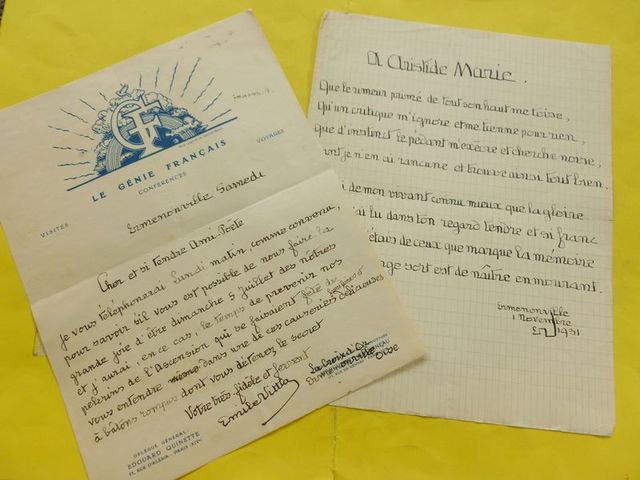 GF
LE GÉNIE FRANÇAIS
VISITES
CONFÉRENCES
VOYAGES
Ermenonville Samedi
Cher et si tendre Ami Poète
Je vous téléphonerai Lundi matin, comme convenu,
pour savoir s'il vous est possible de nous faire la
grande joie d'être dimanche 5 juillet des nôtres
et j'aurai, en ce cas, le temps de prévenir nos
pèlerins de l'Ascension qui se faisaient fête de
vous entendre dans une de ces causeries délicieuses
à bâtons rompus dont vous détenez le secret
Votre très fidèle et fervent
Emile Villa
La Croix d'Or
Ermenonville
Oise
DÉLÉGUÉ GÉNÉRAL
EDOUARD QUINETTE
11, RUE D'ALÉSIA - PARIS XIVe
A Aristide Marie.
Que le rimeur primé de tout son haut me toise,
Qu'un critique m'ignore et me tienne pour rien,
Que d'instinct le pédant m'exècre et cherche noise,
ant je n'en ai rancune et trouve ainsi tout bien.
i de mon vivant connu mieux que la gloire
ai lu dans ton regard tendre et si franc
étais de ceux que marque la mémoire
ge sort est de naître en mourant.
Ermenonville
1 Novembre
1931